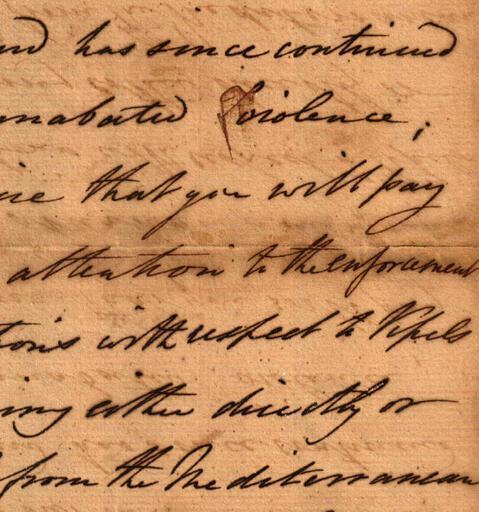 and has since continued
unabated violence;
that you will pay
attention to the enforcement
tions with respect to Vessels
ing either directly or
from the Mediterranean